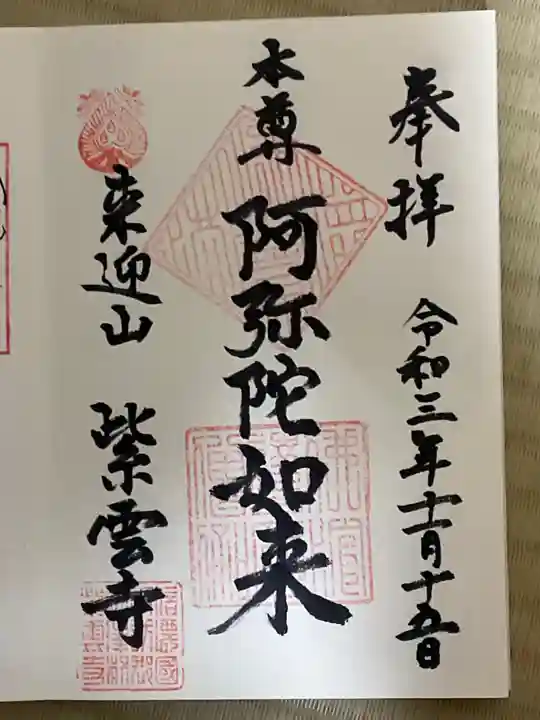 奉拝 令和三年十一月十五日
本尊 阿弥陀如来
来迎山 紫雲寺